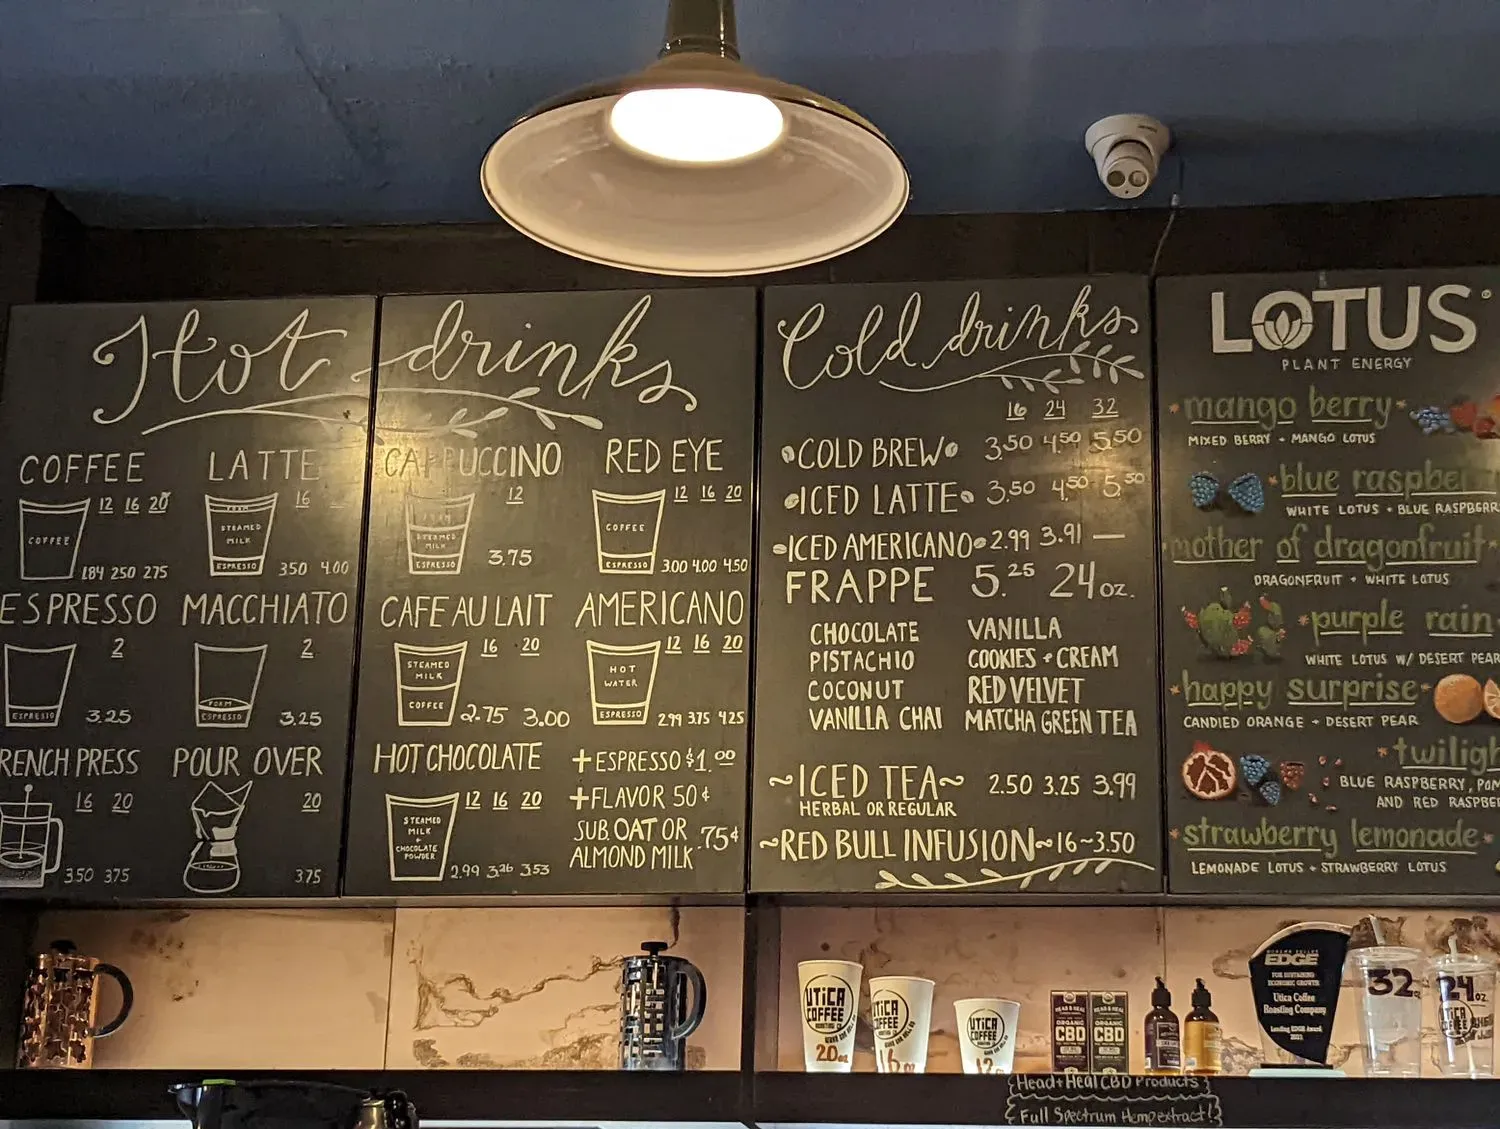 Hot drinks
COFFEE
12 16 20
COFFEE
1.84 2.50 2.75
LATTE
16
FOAM
STEAMED
MILK
ESPRESSO
3.50 4.00
ESPRESSO
2
ESPRESSO
3.25
MACCHIATO
2
FOAM
ESPRESSO
3.25
RENCH PRESS
16 20
3.50 3.75
POUR OVER
20
3.75
CAPPUCCINO
12
FOAM
STEAMED
MILK
ESPRESSO
3.75
RED EYE
12 16 20
COFFEE
ESPRESSO
3.00 4.00 4.50
CAFE AU LAIT
16 20
STEAMED
MILK
COFFEE
2.75 3.00
AMERICANO
12 16 20
HOT
WATER
ESPRESSO
2.99 3.75 4.25
HOT CHOCOLATE
12 16 20
STEAMED
MILK
+
CHOCOLATE
POWDER
2.99 3.26 3.53
+ESPRESSO $1.00
+FLAVOR 50¢
SUB OAT OR
ALMOND MILK .75¢
Cold drinks
16 24 32
COLD BREW 3.50 4.50 5.50
ICED LATTE 3.50 4.50 5.50
ICED AMERICANO 2.99 3.91 —
FRAPPE 5.25 24oz.
CHOCOLATE VANILLA
PISTACHIO COOKIES + CREAM
COCONUT RED VELVET
VANILLA CHAI MATCHA GREEN TEA
~ICED TEA~ 2.50 3.25 3.99
HERBAL OR REGULAR
~RED BULL INFUSION~16~3.50
LOTUS
PLANT ENERGY
mango berry
MIXED BERRY + MANGO LOTUS
blue raspber
WHITE LOTUS + BLUE RASPBERR
mother of dragonfruit
DRAGONFRUIT + WHITE LOTUS
purple rain
WHITE LOTUS W/ DESERT PEAR
happy surprise
CANDIED ORANGE + DESERT PEAR
twiligh
BLUE RASPBERRY, POM
AND RED RASPBE
strawberry lemonade
LEMONADE LOTUS + STRAWBERRY LOTUS
UTICA
COFFEE
ROASTING CO
20oz
UTICA
COFFEE
16oz
UTICA
COFFEE
12
HEAD & HEAL
ORGANIC
CBD
HEAD & HEAL
ORGANIC
CBD
EDGE
FOR SUSTAINING
ECONOMIC GROWTH
Utica Coffee
Roasting Company
Leading EDGE Award
32
24oz
UTICA
COFFEE
Head+Heal CBD Products
Full Spectrum Hemp extract!